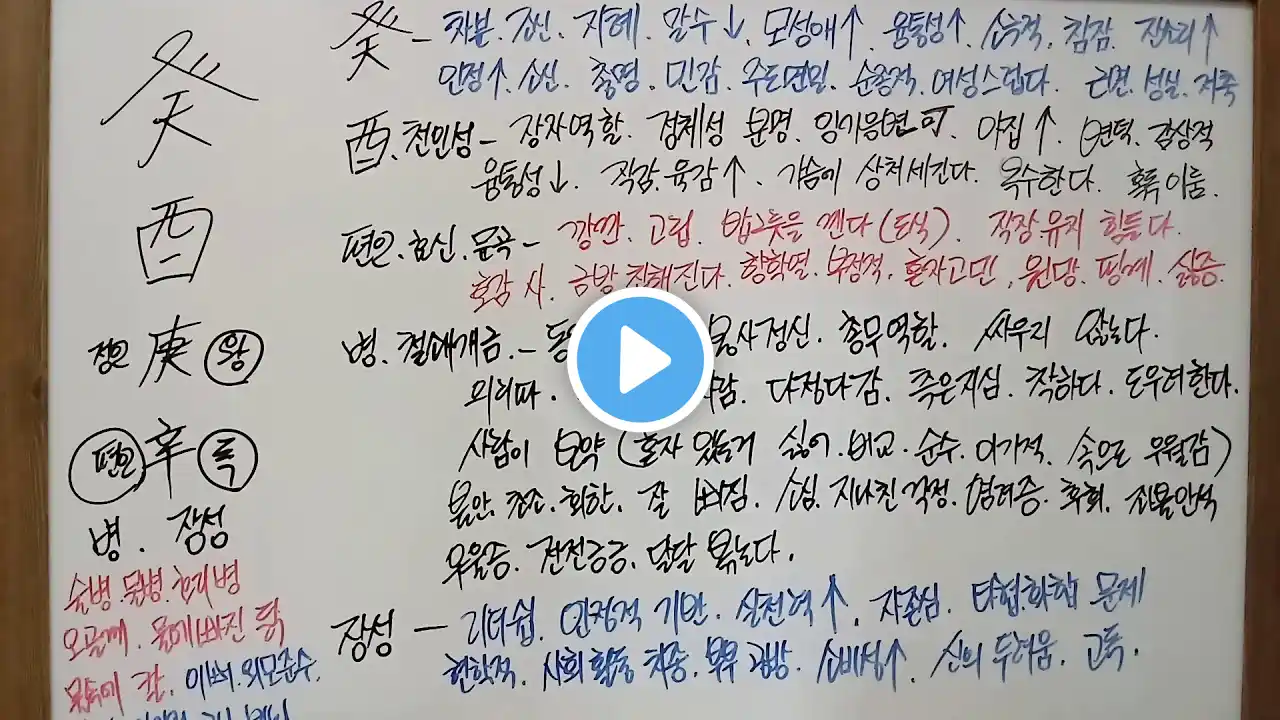 癸
酉
정인 庚 왕
편인 辛 록
병. 장성
술병. 물병. 허리병
오골계. 물에 빠진 닭
물속에 칼. 이뻐. 외모준수.
癸 - 차분. 정신. 지혜. 말수↓. 모성애↑. 융통성↑. 소극적. 침잠. 잔소리↑
인정↑. 소신. 총명. 민감. 주도면밀. 순종적. 여성스럽다. 근면. 성실. 저축
酉. 천인성 - 장자역할. 정체성 분명. 임기응변 可. 아집↑. 변덕. 감상적
융통성↓. 직감. 육감↑. 가슴에 상처 새긴다. 복수한다. 혹 이룸.
편인. 효신. 문곡 - 깡깐. 고립. 밥그릇을 깬다 (도식). 직장유지 힘들다.
호감 사. 금방 친해진다. 향학열. 부정적. 혼자고민, 원망. 핑계. 싫증.
병. 절대개금. - 봉사정신. 총무역할. 싸우지 않는다.
의리파. 다정다감. 측은지심. 착하다. 도우려한다.
사람이 보약 (혼자 있는거 싫어. 비교. 순수. 이기적. 속으로 우월감)
불안. 초조. 회한. 잘 삐짐. 소심. 지나친 걱정. 염려증. 후회. 좌불안석
우울증. 전전긍긍. 달달 볶는다.
장성 - 리더쉽. 안정적 기반. 실천력↑. 자존심. 타협화합 문제
현학적. 사회활동 치중. 부부 공방. 소비성↑. 신의 두려움. 고독.